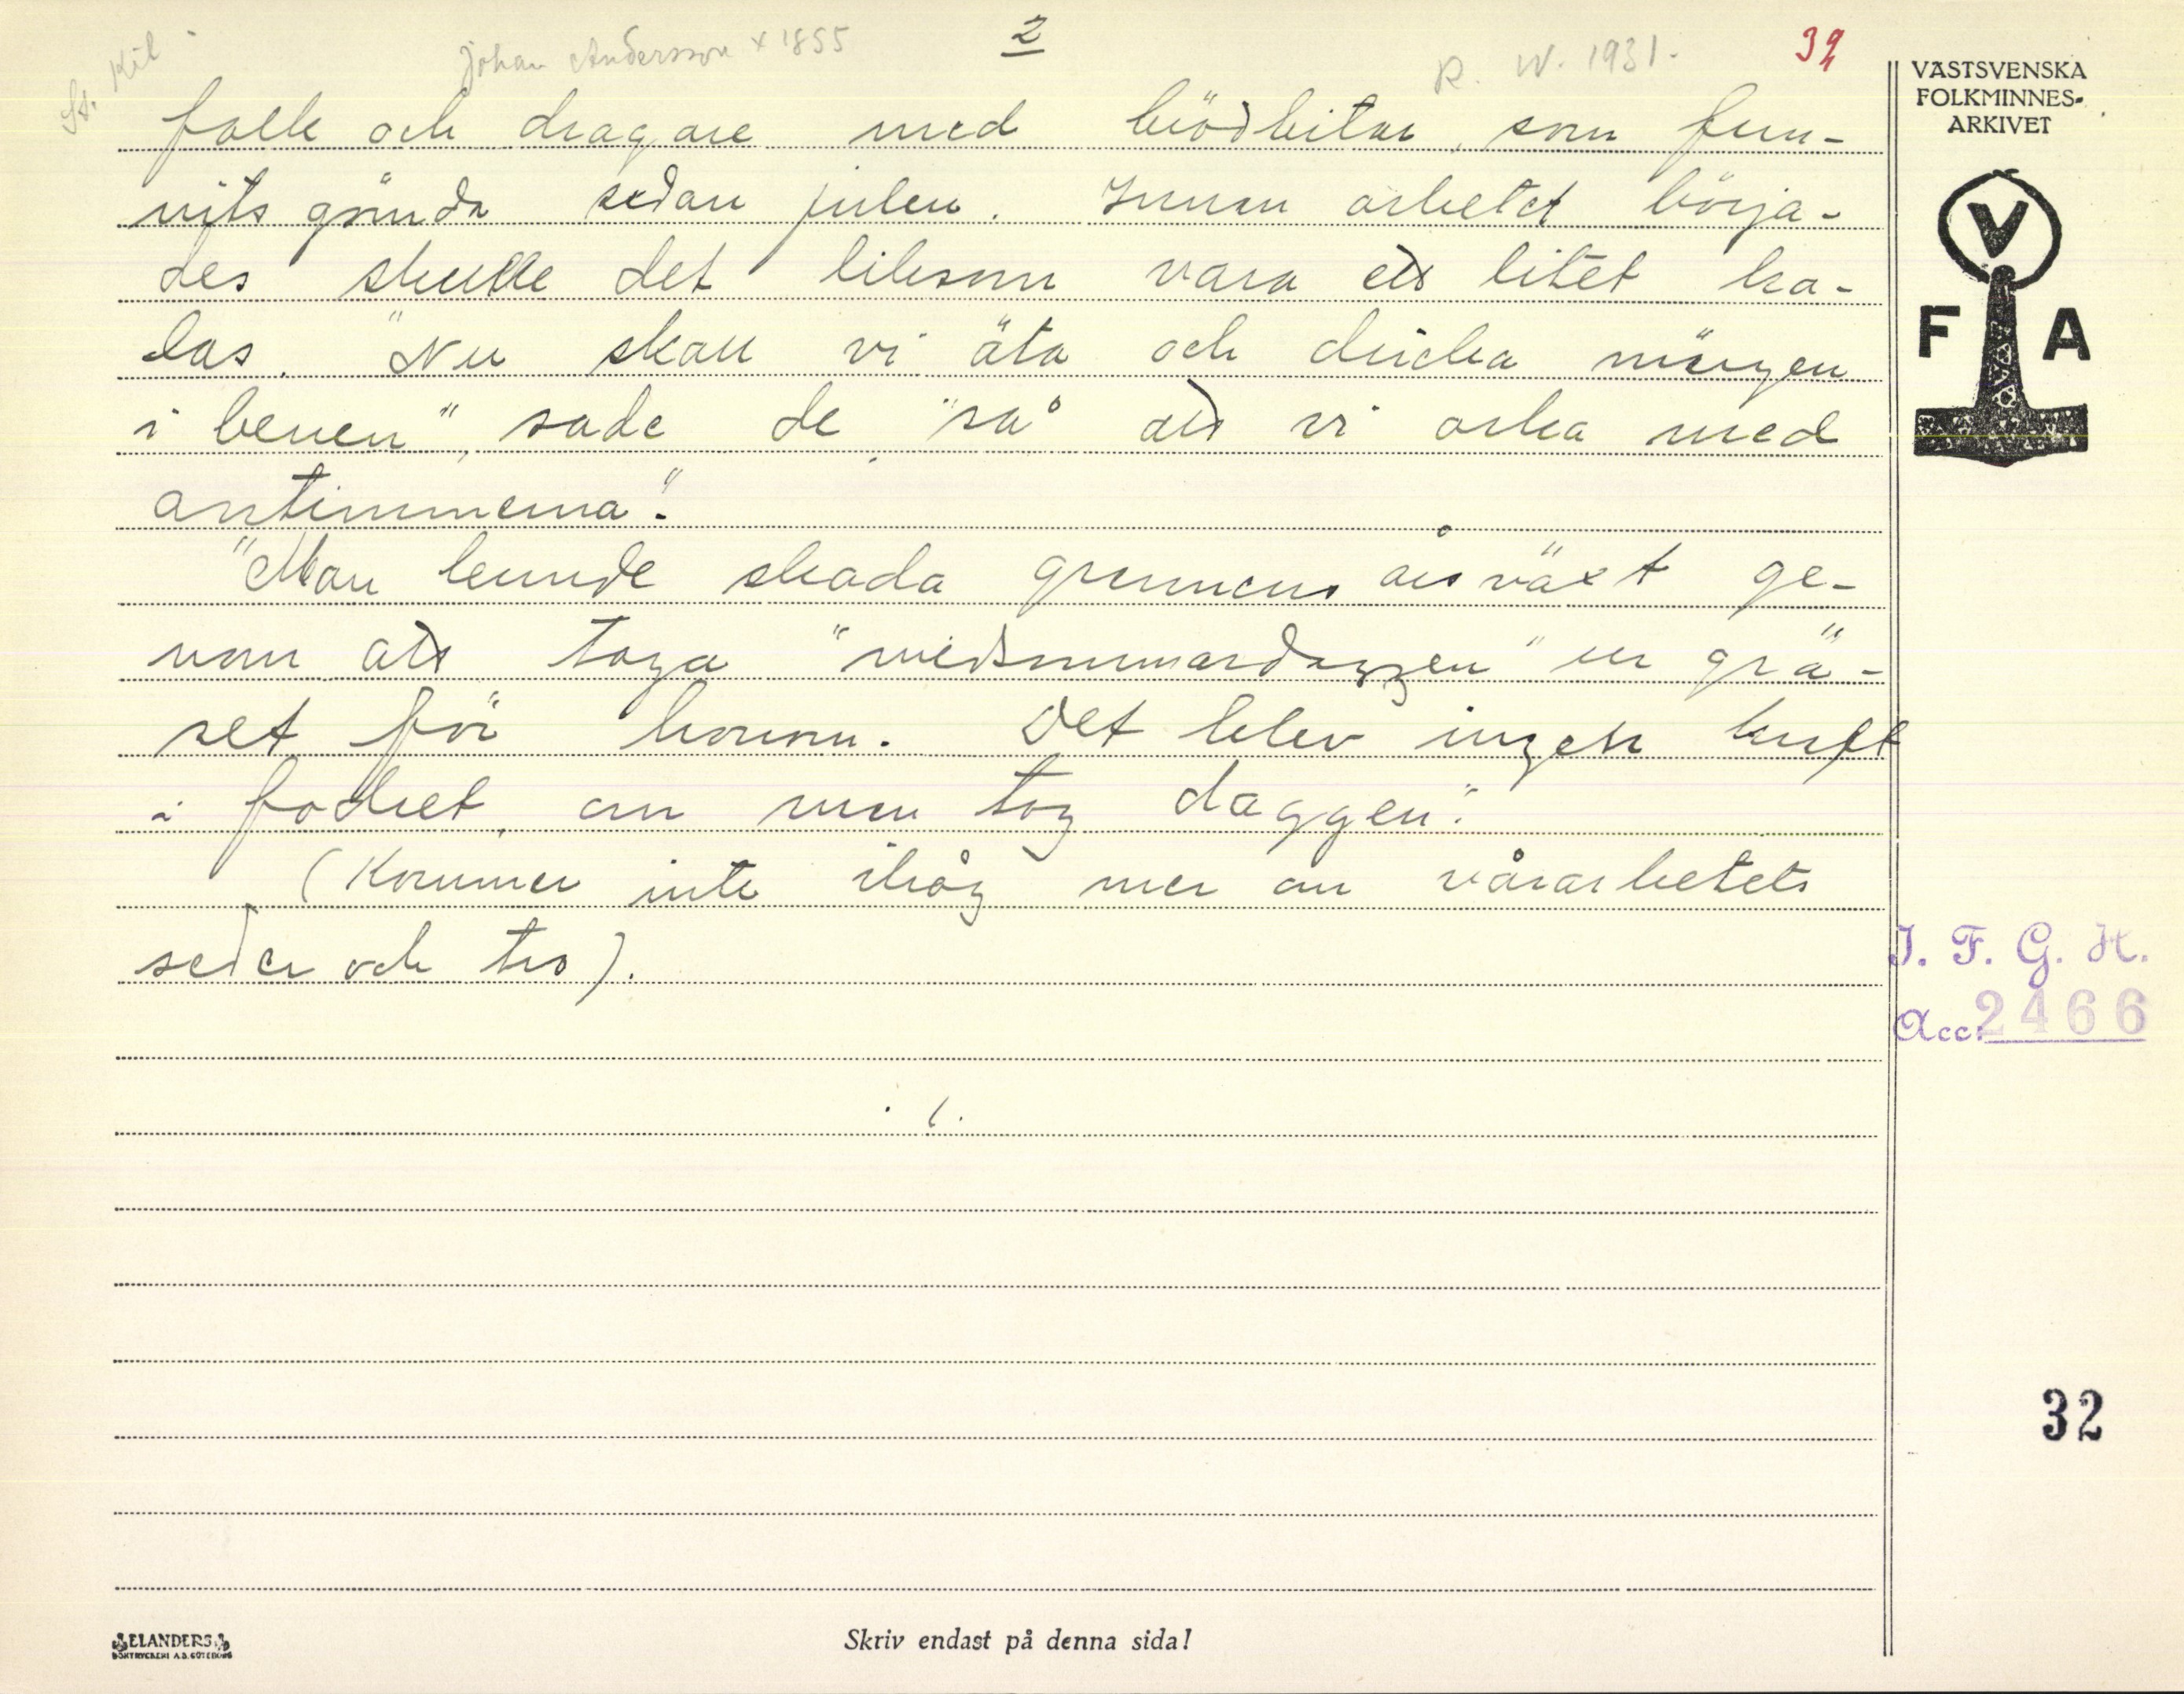 St. Kil
Johan Andersson x 1855
2
R. W. 1931.
32
folk och dragare med brödbitar, som fun-
nits gömda sedan julen. Innan arbetet börja-
des skulle det liksom vara ett litet ka-
las. "Nu skall vi äta och dricka märgen
i benen", sade de "så att vi orka med
antimmerna".
"Man kunde skada grannens årsväxt ge-
nom att taga "midsommardaggen" ur grä-
set för honom. Det blev ingen kraft
i fodret, om man tog daggen".
(Kommer inte ihåg mer om vårarbetets
seder och tro).
VÄSTSVENSKA
FOLKMINNES-
ARKIVET
V
F A
I. F. G. H.
Acc. 2466
32
ELANDERS
BOKTRYCKERI A.B. GÖTEBORG
Skriv endast på denna sida!